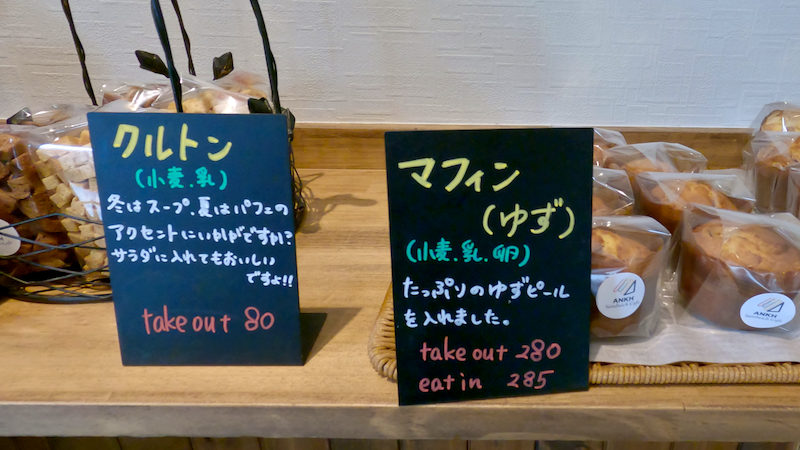 クルトン
(小麦.乳)
冬はスープ、夏はパフェの
アクセントにいかがですか?
サラダに入れてもおいしい
ですよ!!
take out 80
マフィン
(ゆず)
(小麦.乳.卵)
たっぷりのゆずピール
を入れました。
take out 280
eat in 285
ANKH
Sandwich Cafe
ANKH
Sandwich Cafe